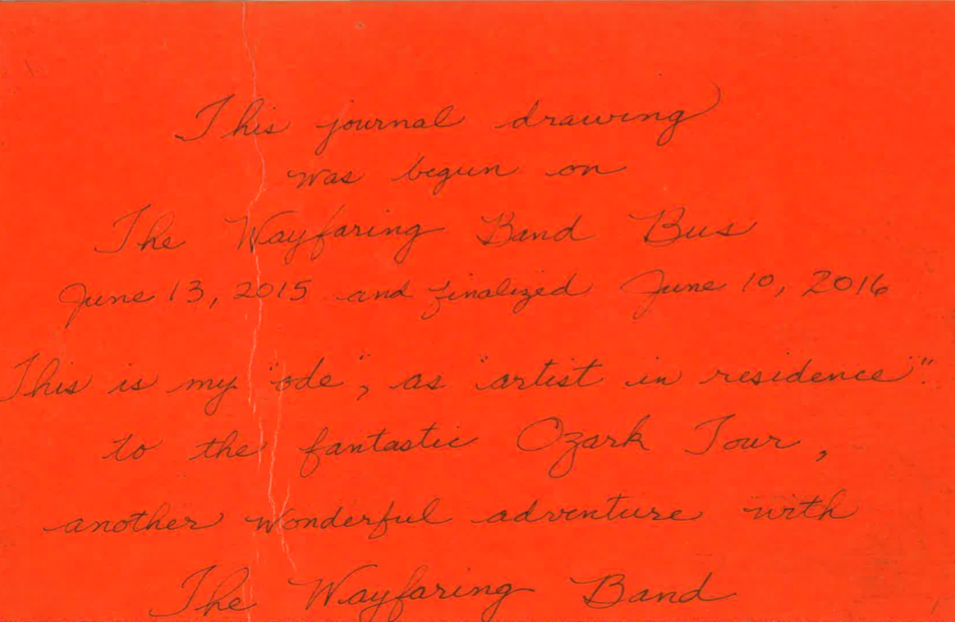 This journal drawing
was begun on
The Wayfaring Band Bus
June 13, 2015 and finalized June 10, 2016
This is my "ode", as "artist in residence".
to the fantastic Ozark Tour,
another wonderful adventure with
The Wayfaring Band